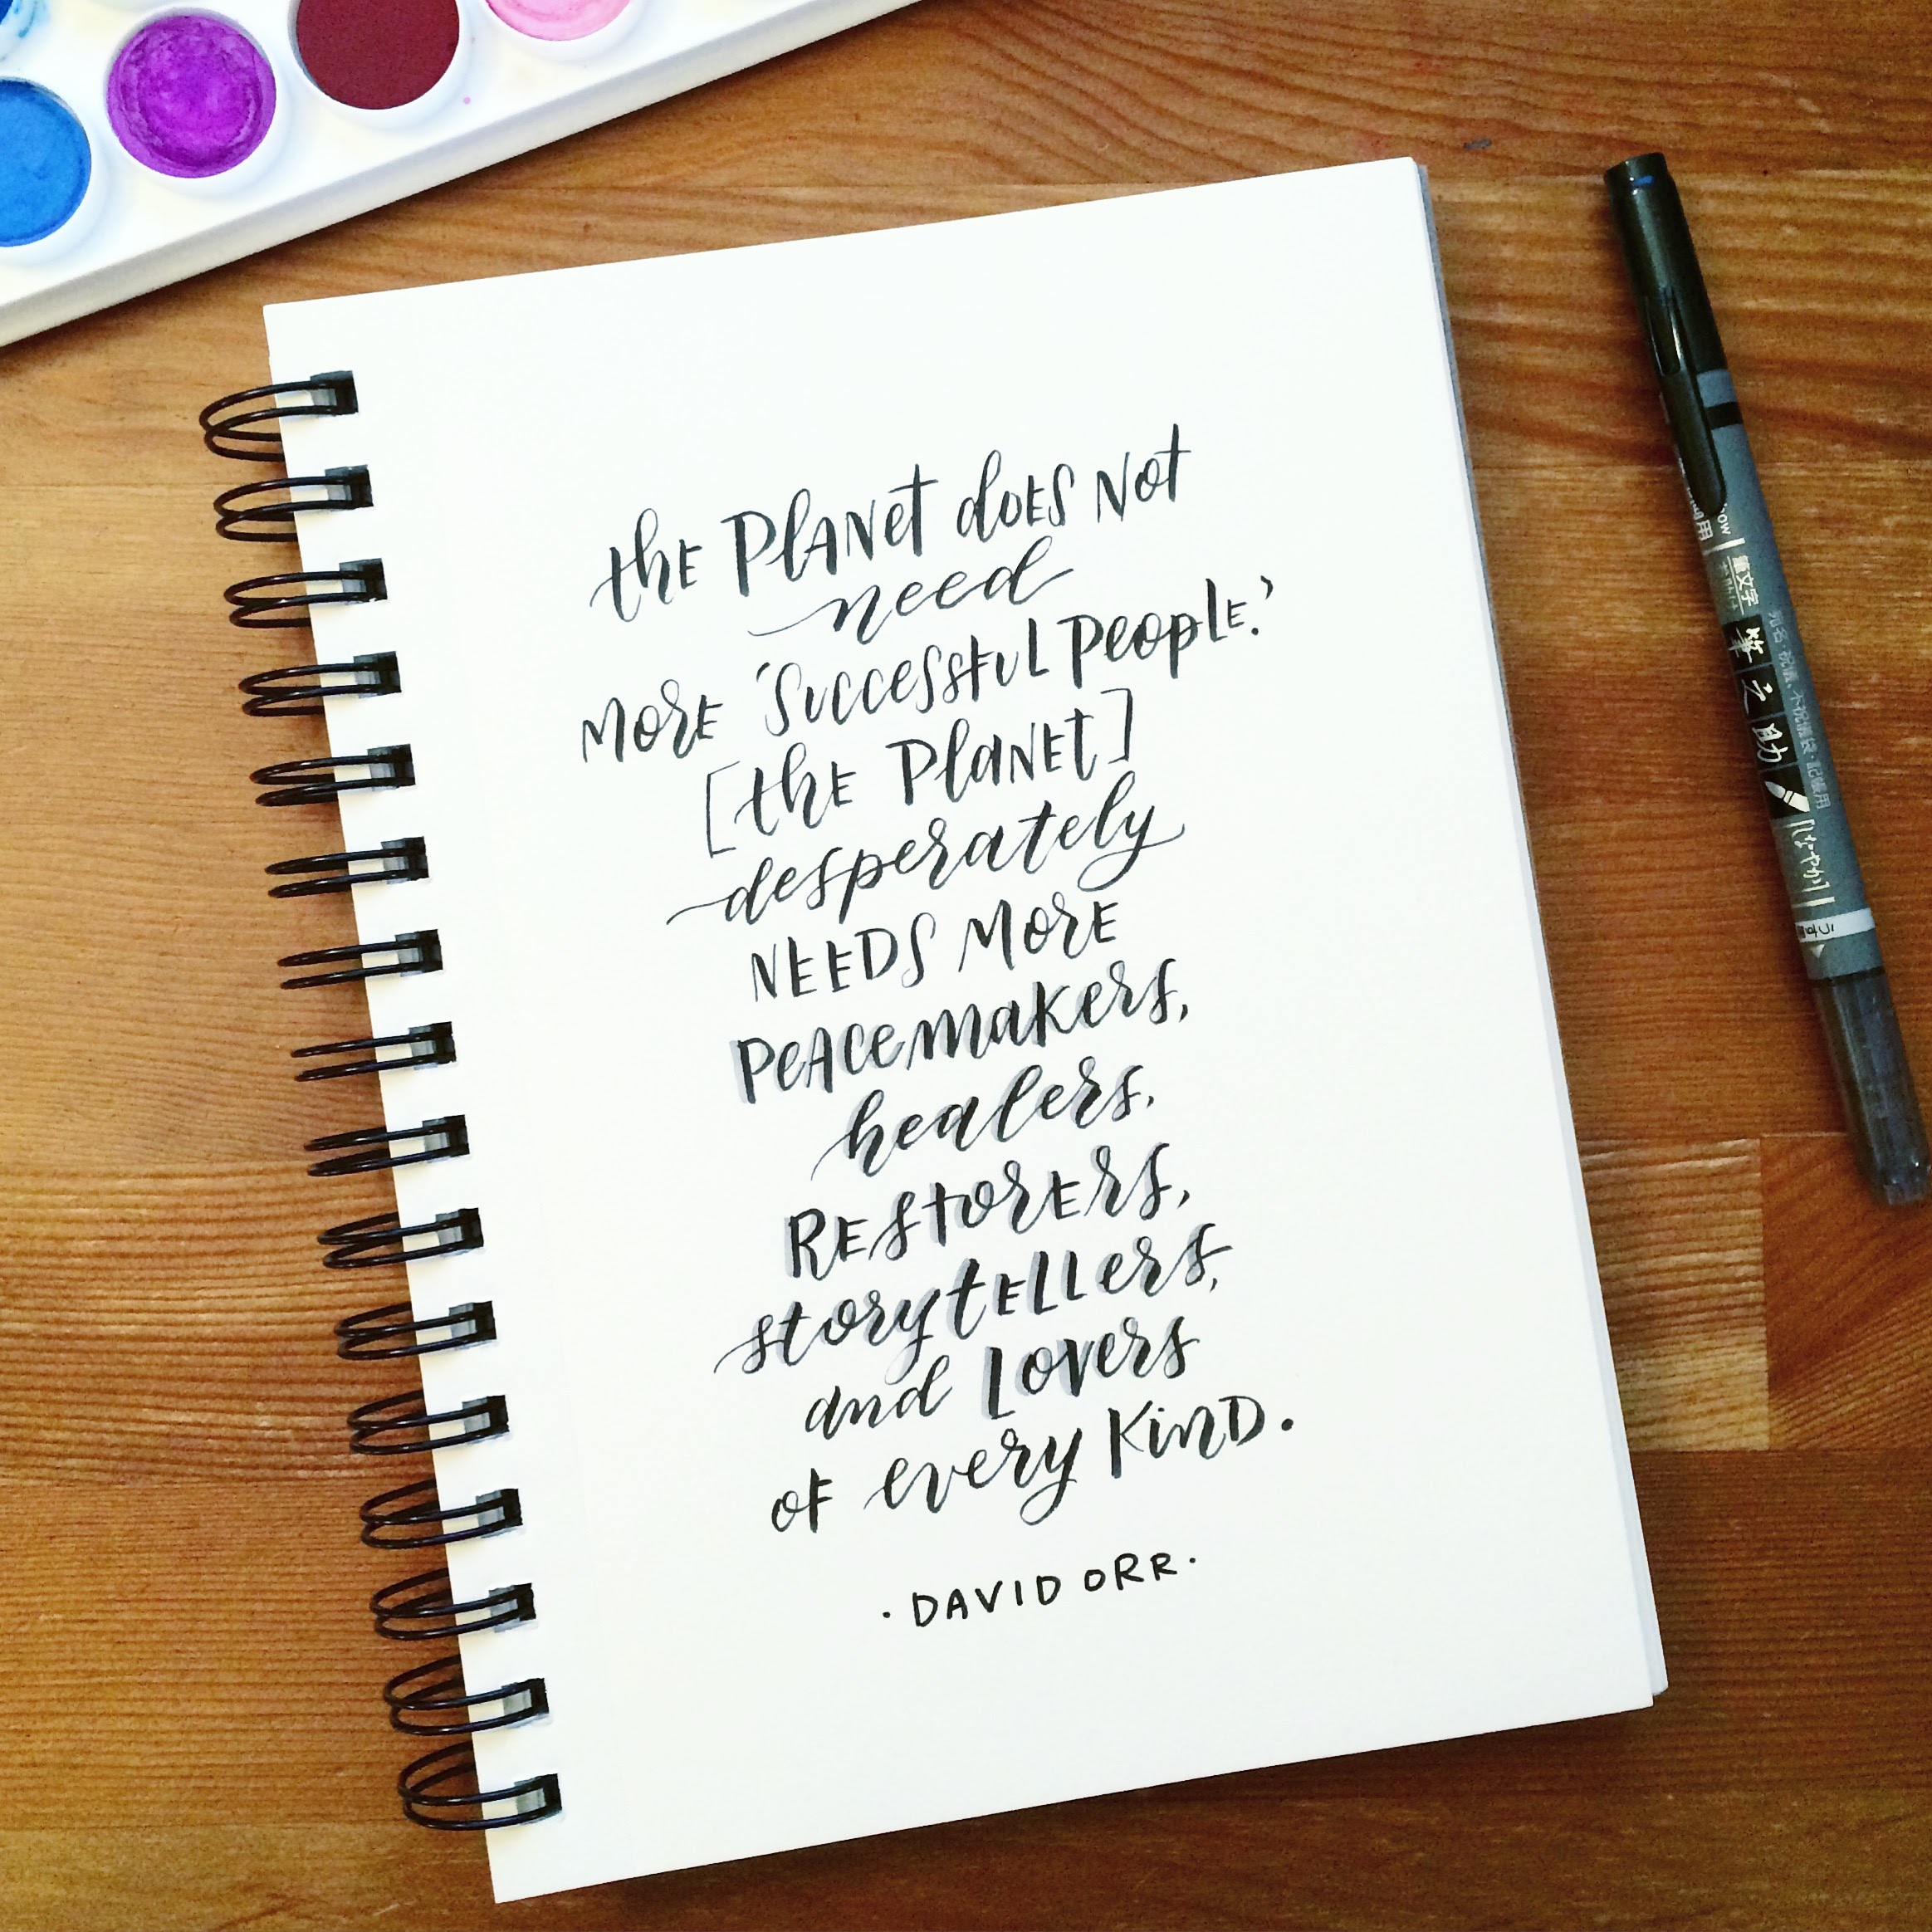 the PLANet does Not
need
More 'Successful People.'
[the PLaNET]
desperately
NEEDS More
Peacemakers,
healers,
Restorers,
storytellers,
and Lovers
of every KinD.
· DAVID ORR ·
筆文字
筆之助
しなやか